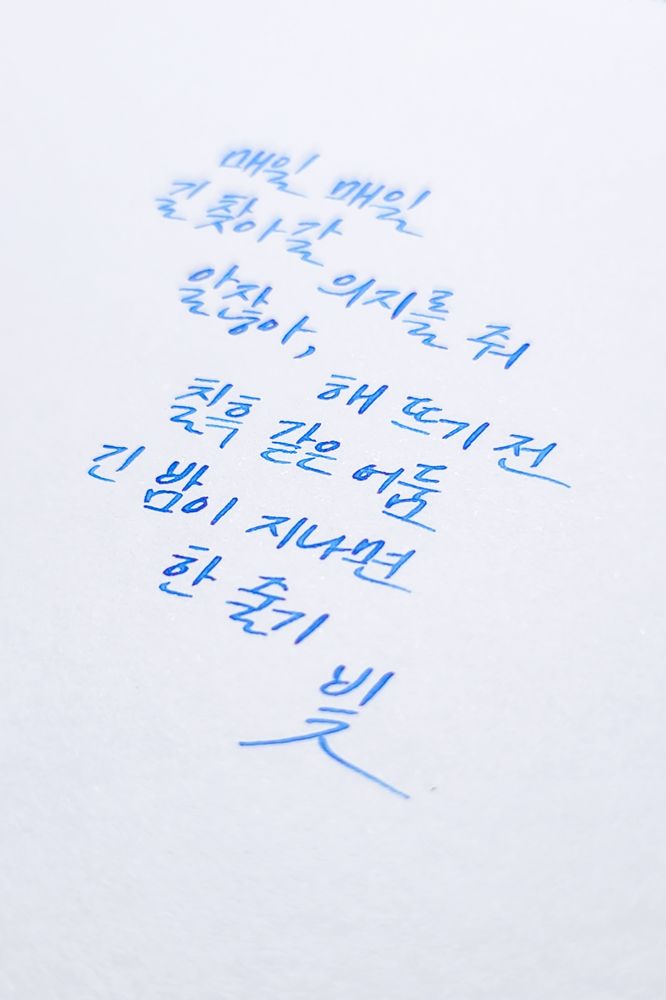 매일 매일
길 찾아갈
의지를 줘
알잖아,
해 뜨기 전
칠흑 같은 어둠
긴 밤이 지나면
한 줄기
빛